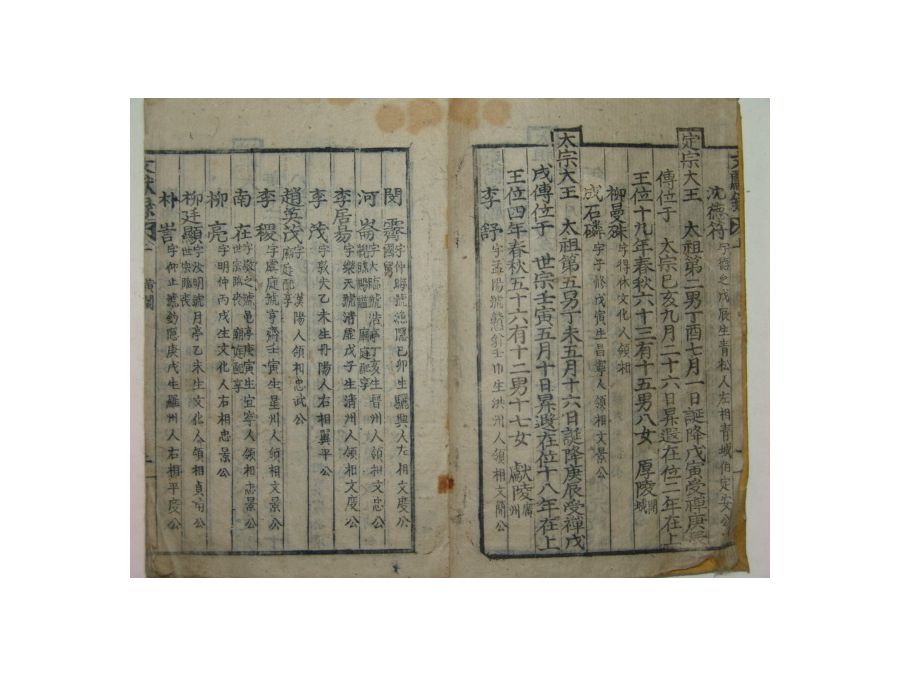 沈德符 字德之戊辰生青松人左相青城伯定安公
定宗大王 太祖第二男丁酉七月一日誕降戊寅受禪庚辰
傳位子 太宗己亥九月二十六日昇遐在位二年在上
王位十九年春秋六十三有十五男八女 厚陵
柳曼殊 字得林文化人領相
成石磷 字子修戊寅生昌寧人領相文景公
太宗大王 太祖第五男丁未五月十六日誕降庚辰受禪戊
戌傳位子 世宗壬寅五月十日昇遐在位十八年在上
王位四年春秋五十六有十二男十七女 獻陵廣州
李舒 字孟陽號戇翁壬申生洪州人領相文簡公
閔霽 字仲晦號漁隱己卯生驪興人左相文度公 國舅
河崙 字大臨號浩亭丁亥生晉州人領相文忠公 廟庭配享
李居易 字樂天號清虛戊子生清州人領相文度公
李茂 字敦夫乙未生丹陽人右相翼平公
趙英茂 字 漢陽人領相忠武公 廟庭配享
李稷 字虞庭號亨齋壬寅生星州人領相文景公
南在 字敬之號龜亭庚寅生宜寧人領相忠景公 世宗臨喪 廟庭配享
柳亮 字明仲丙戌生文化人右相忠景公
柳廷顯 字汝明號月亭乙未生文化人領相貞肅公 世宗臨喪
朴訔 字仰止號釣隱庚戌生羅州人右相平度公